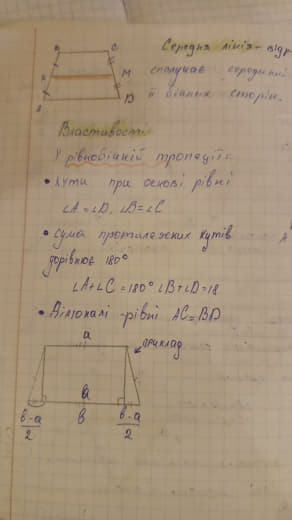 B C
Середня лінія - відр
M
сполучає середини
D
її бічних сторін.
Властивості
У рівнобічній трапеції:
• Кути при основі рівні
∠A = ∠D, ∠B = ∠C
• Сума протилежних кутів
дорівнює 180°
∠A + ∠C = 180° ∠B + ∠D = 18
• Діагоналі - рівні AC = BD
a
приклад
a
b-a/2 b b-a/2